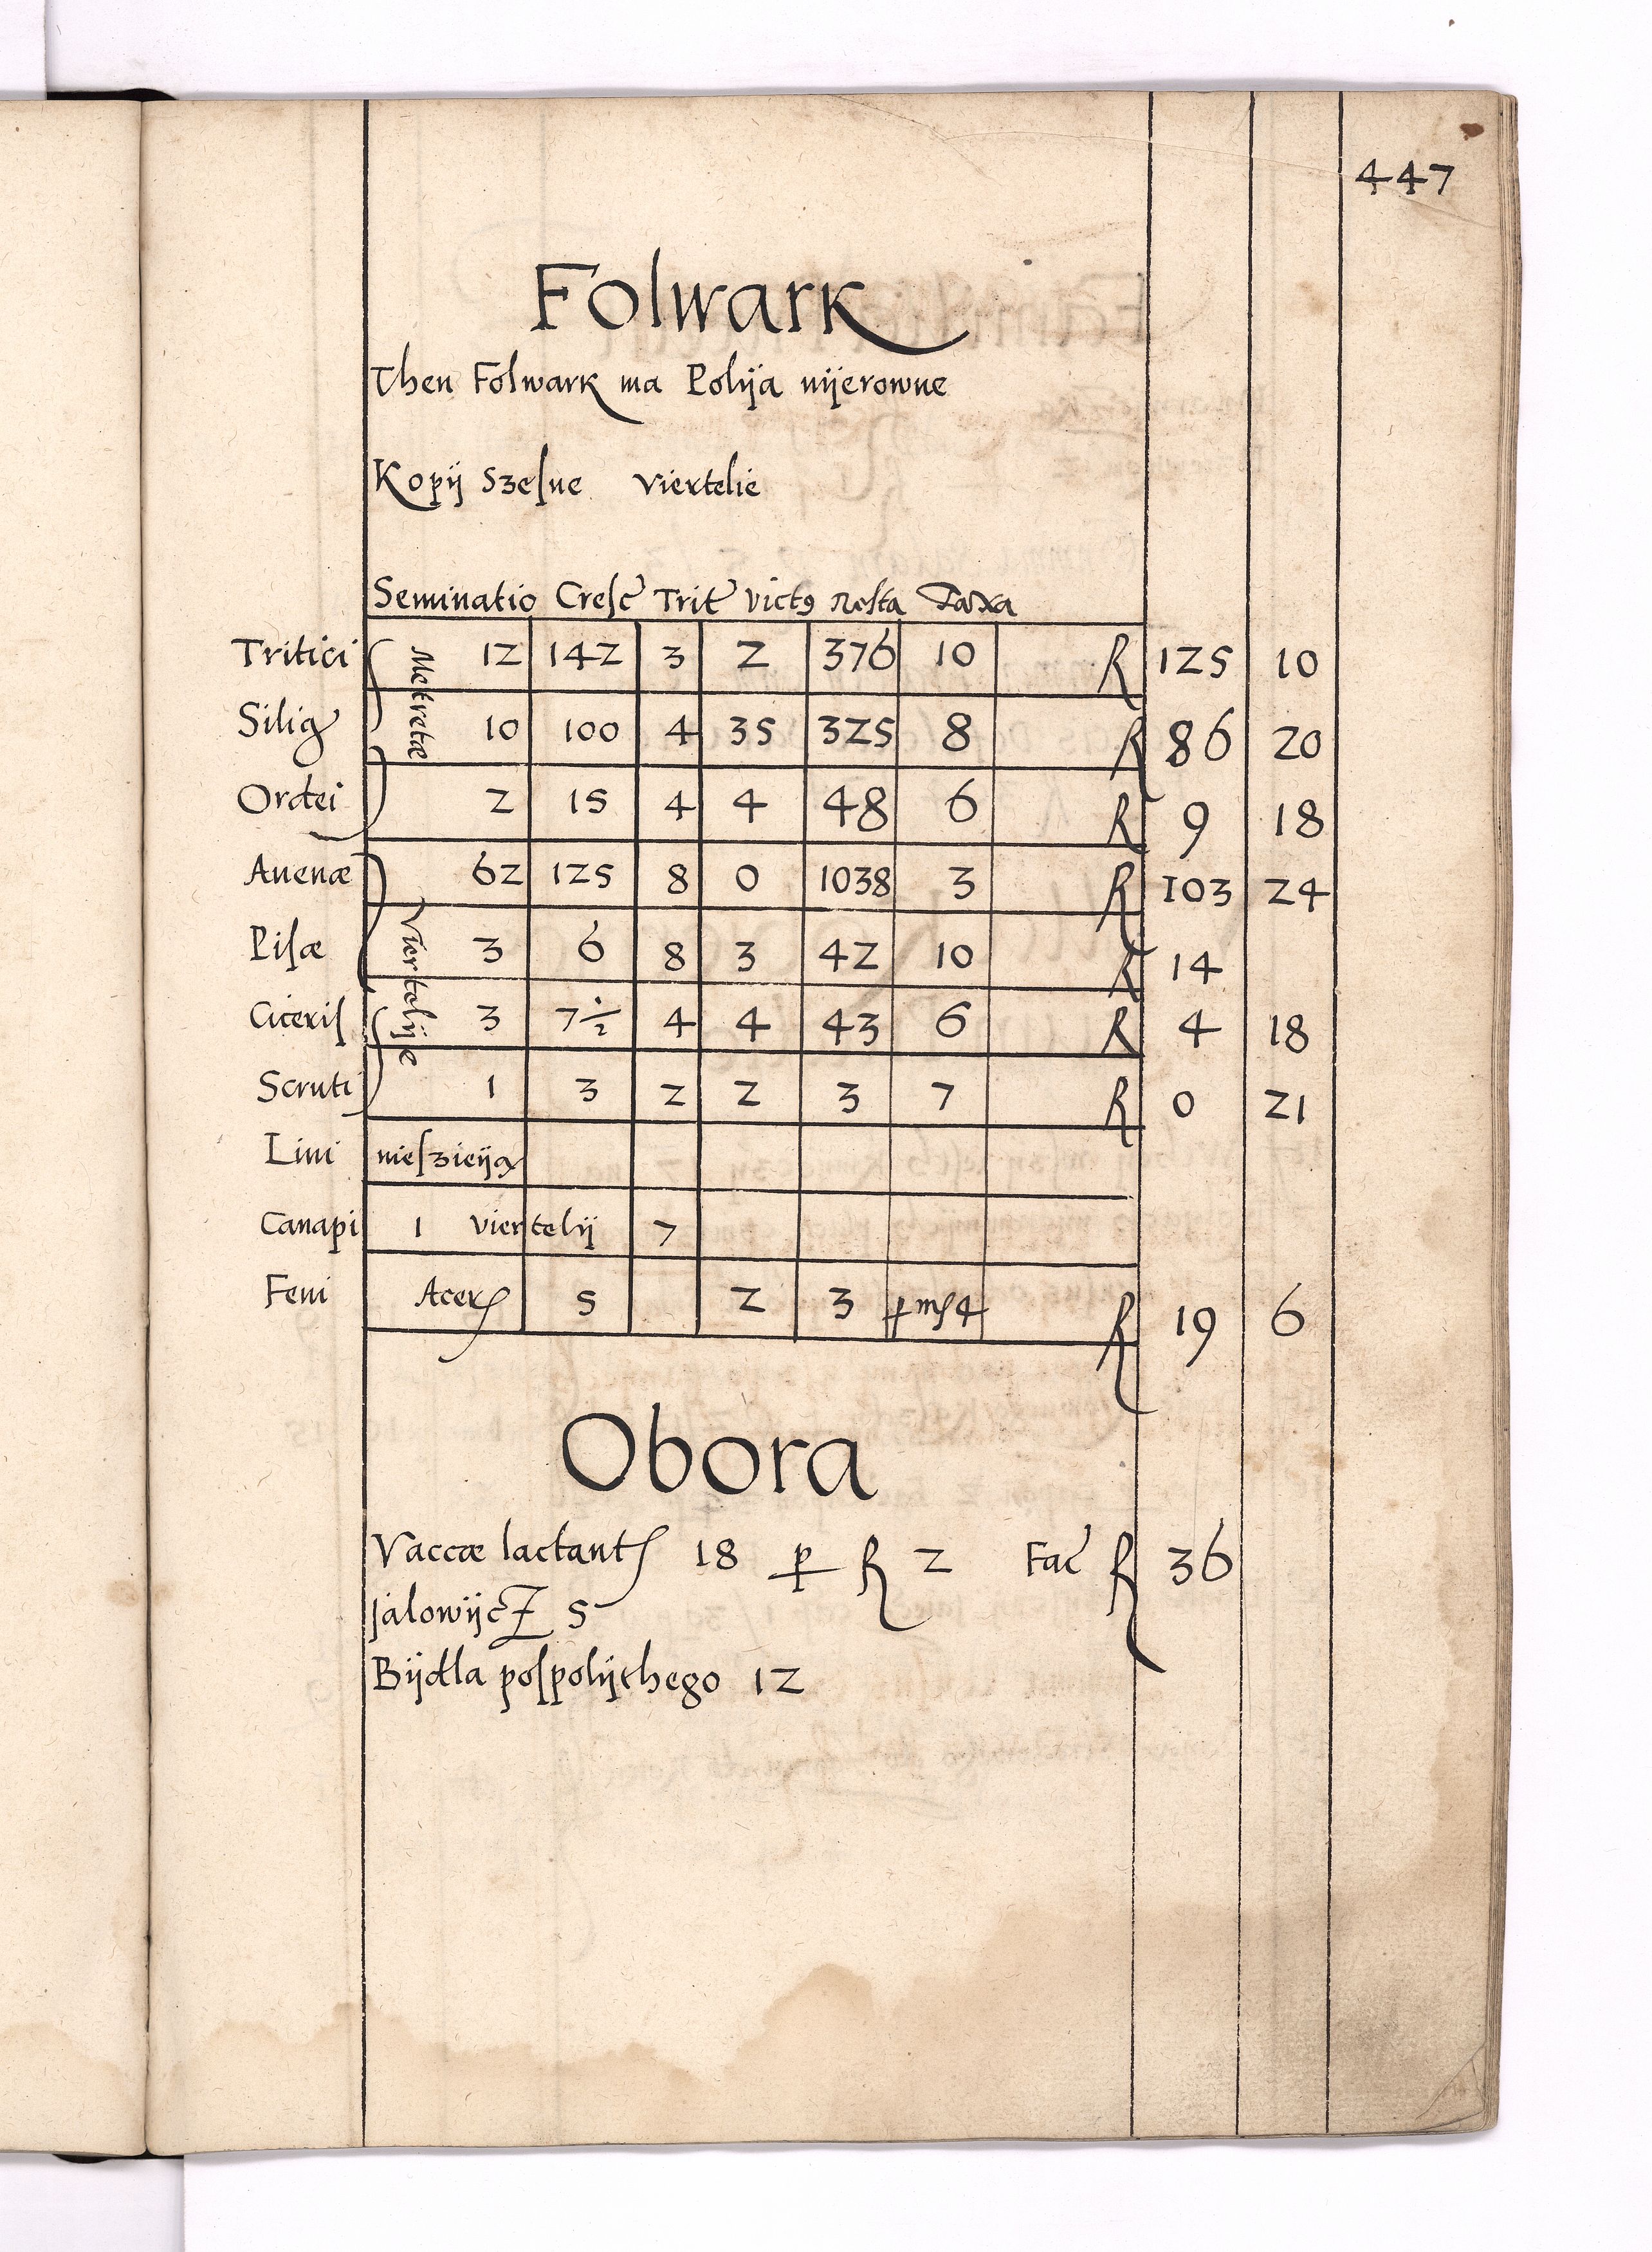 447
Folwark
Then Folwark ma Polija nijerowne
Kopij Szeſne Viertelie
Seminatio Creſc Trit Victꝰ Reſta Taxa
Tritici Metretæ 12 142 3 2 376 10 R 125 10
Silig 10 100 4 35 325 8 R 86 20
Ordei 2 15 4 4 48 6 R 9 18
Auenæ Viertelije 62 125 8 0 1038 3 R 103 24
Piſæ 3 6 8 3 42 10 R 14
Ciceriſ 3 7 1/2 4 4 43 6 R 4 18
Scruti 1 3 2 2 3 7 R 0 21
Lini nieſzieija
Canapi 1 viertelij 7
Feni Acer 5 2 3 4 R 19 6
Obora
Vaccæ lactant 18 ꝑ R 2 Fac R 36
Jalowijcz 5
Bijdla poſpolijthego 12